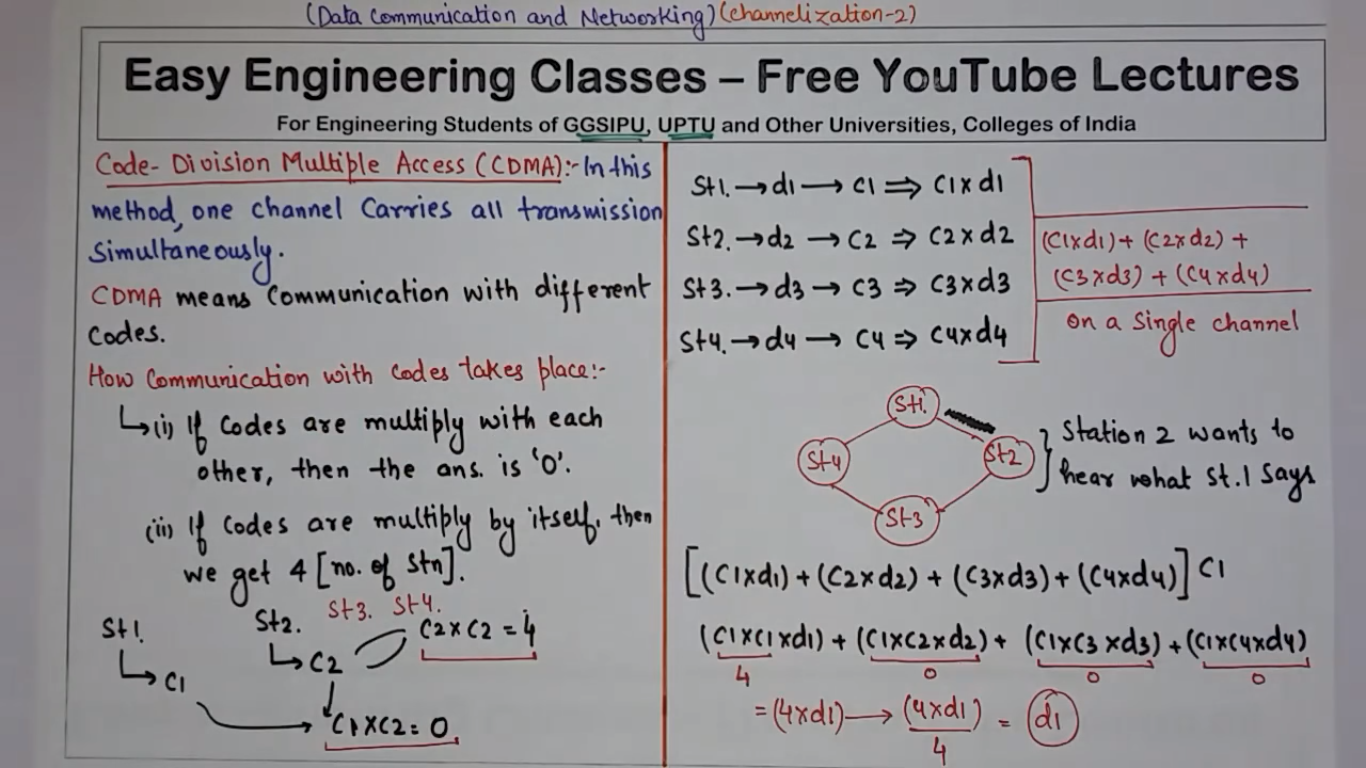 (Data Communication and Networking) (Channelization-2)
Easy Engineering Classes – Free YouTube Lectures
For Engineering Students of GGSIPU, UPTU and Other Universities, Colleges of India
Code-Division Multiple Access (CDMA):- In this
method, one channel Carries all transmission
Simultaneously.
CDMA means Communication with different
Codes.
How Communication with Codes takes place:-
(i) If Codes are multiply with each
other, then the ans. is '0'.
(ii) If Codes are multiply by itself, then
we get 4 [no. of Stn].
St1. St2. St3. St4.
C2×C2 = 4
C2
C1
C1×C2 = 0
St1. → d1 → C1 ⇒ C1×d1
St2. → d2 → C2 ⇒ C2×d2
St3. → d3 → C3 ⇒ C3×d3
St4. → d4 → C4 ⇒ C4×d4
(C1×d1) + (C2×d2) +
(C3×d3) + (C4×d4)
on a Single channel
St1.
St4
St2
St3
Station 2 wants to
hear what St.1 Says
[(C1×d1) + (C2×d2) + (C3×d3) + (C4×d4)] C1
(C1×C1×d1) + (C1×C2×d2) + (C1×C3×d3) + (C1×C4×d4)
4 0 0 0
= (4×d1) → (4×d1) = d1
4